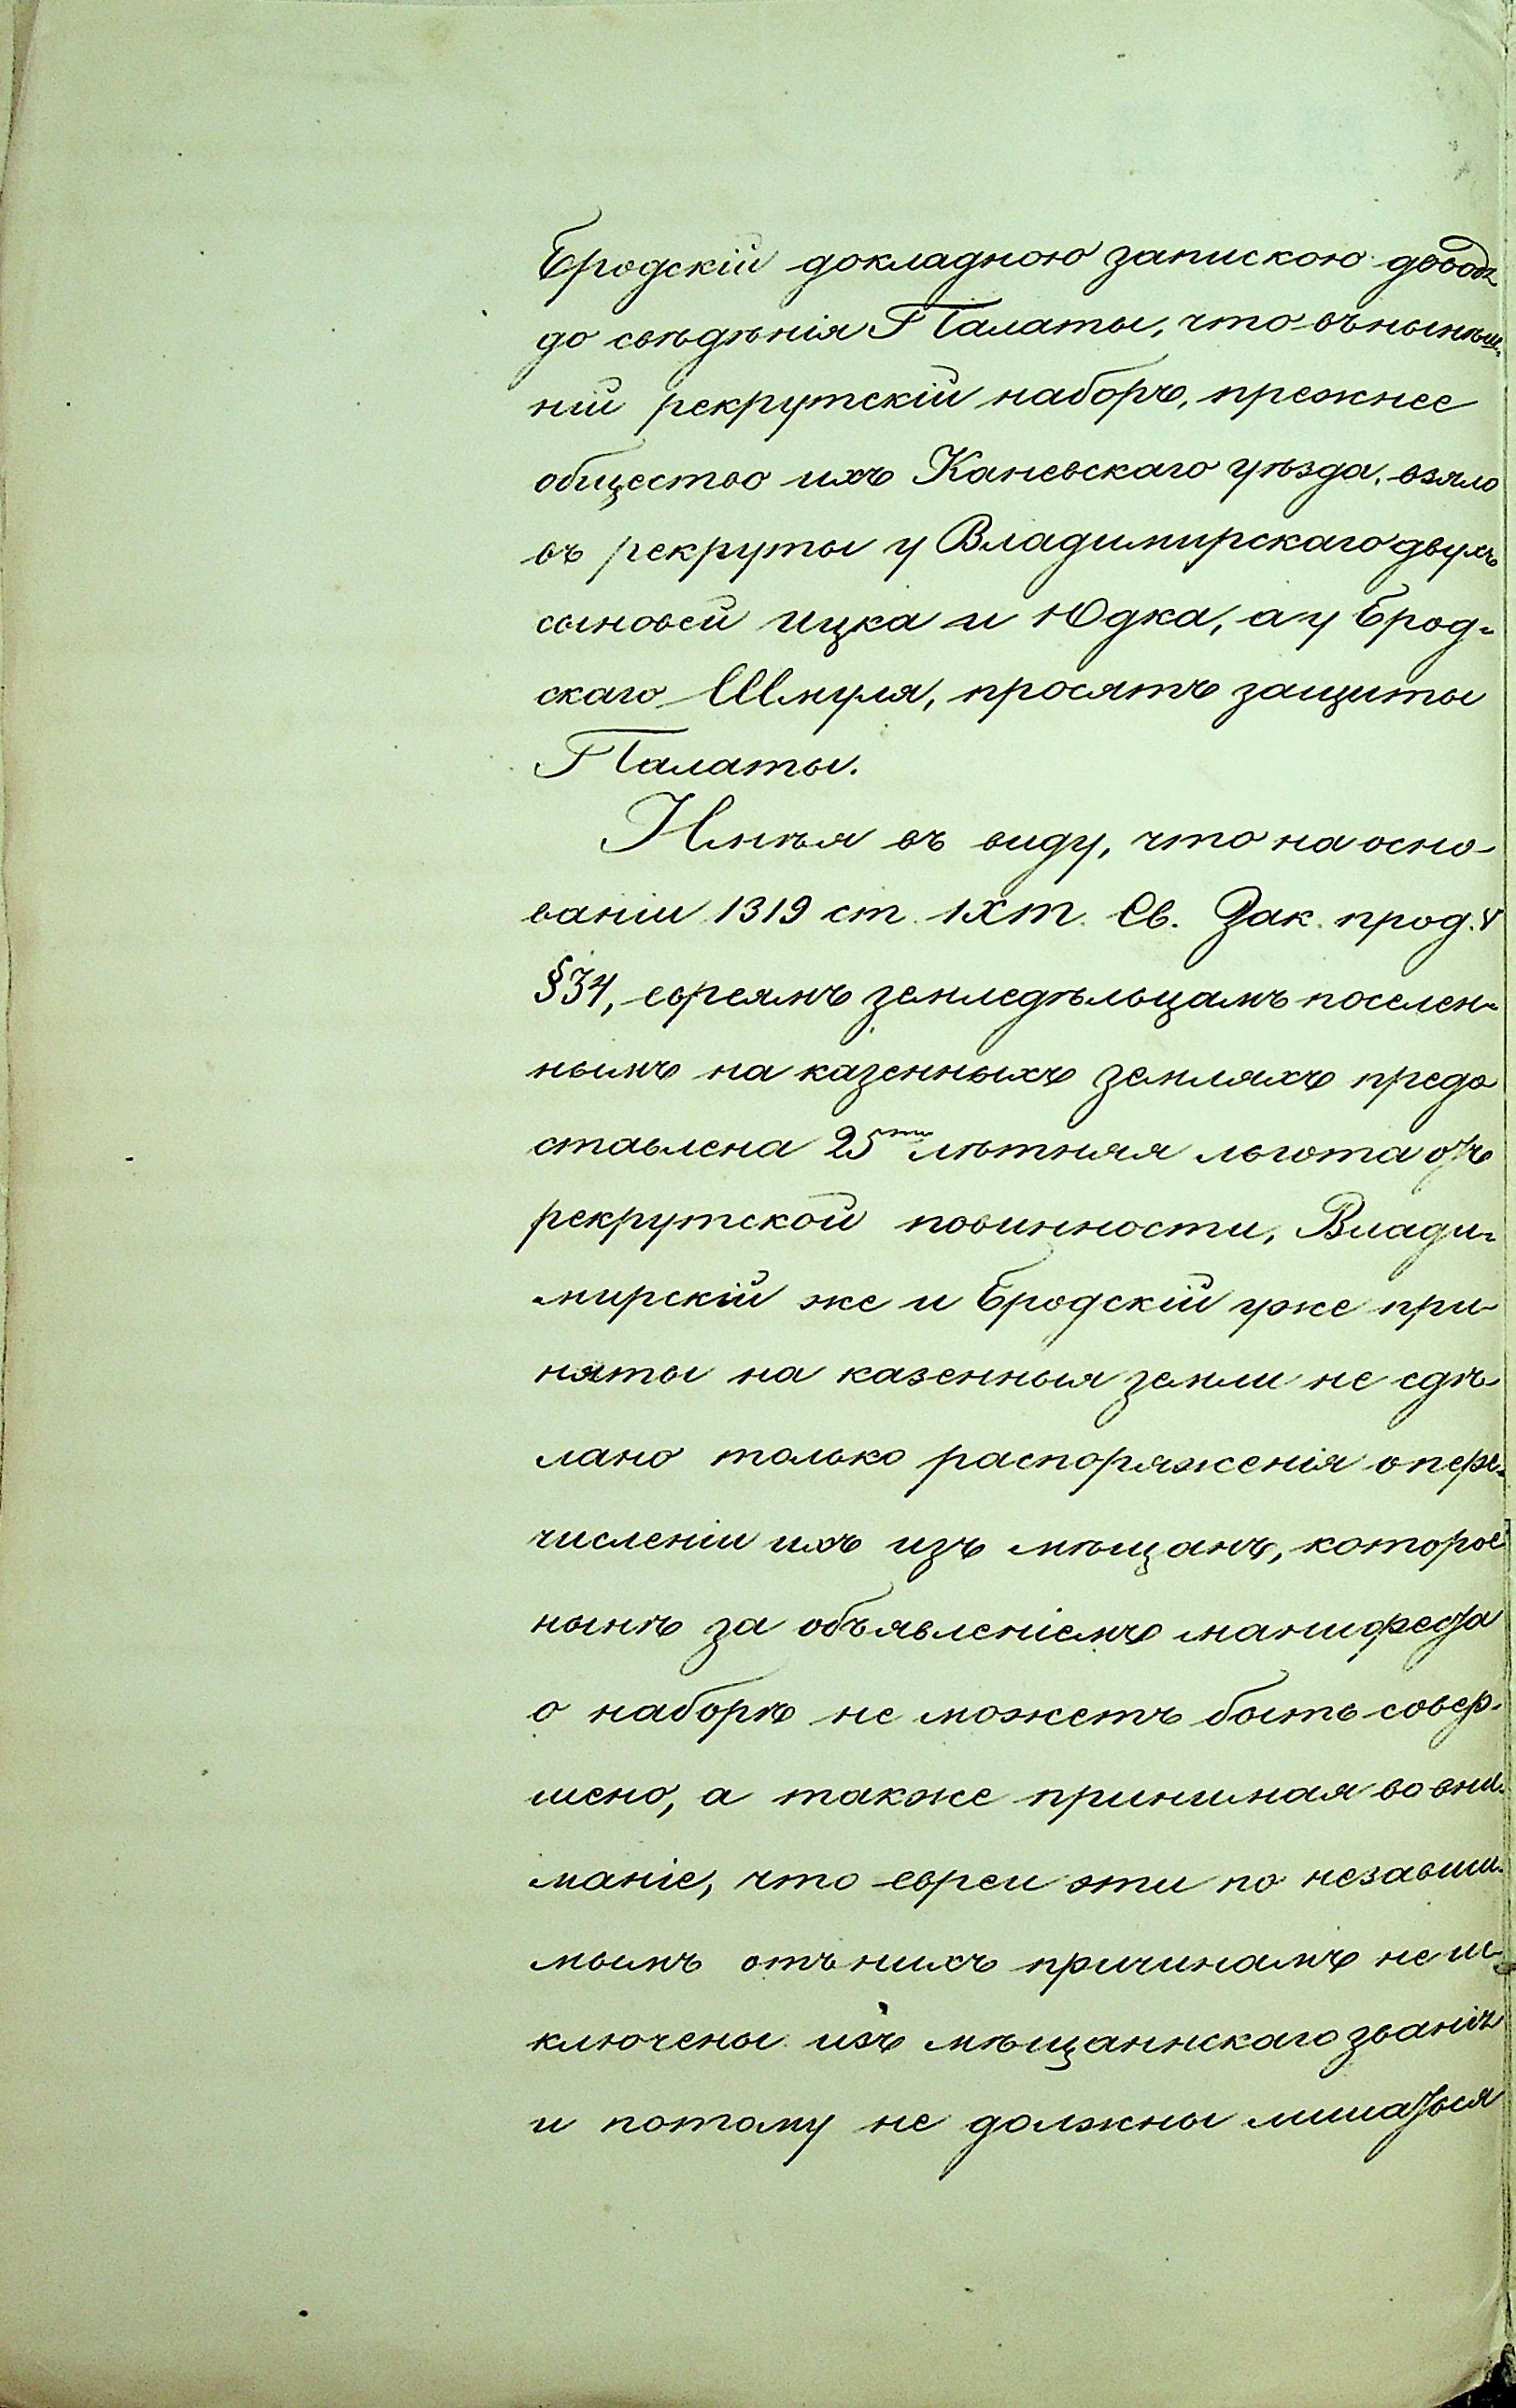 Бродскій докладною запискою доводя
до свѣдѣнія Палаты, что въ нынѣш-
ній рекрутскій наборъ, прежнее
общество ихъ Каневскаго уѣзда, взяло
въ рекруты у Владимирскаго двухъ
сыновей Ицка и Юдка, а у Брод-
скаго Шмуля, просятъ защиты
Палаты.
Имѣя въ виду, что на осно-
ваніи 1319 ст. IX т. Св. Зак. прод. V
§ 34, евреямъ земледѣльцамъ поселен-
нымъ на казенныхъ земляхъ предо
ставлена 25ти лѣтняя льгота отъ
рекрутской повинности, Влади-
мирскій же и Бродскій уже при-
няты на казенныя земли не сдѣ-
лано только распоряженія о пере-
численіи ихъ изъ мѣщанъ, которое
нынѣ за объявленіемъ манифеста
о наборѣ не можетъ быть совер-
шено, а также принимая во вни-
маніе, что евреи эти по независи-
мымъ отъ нихъ причинамъ не ис-
ключены изъ мѣщаннскаго званія
и потому не должны лишаться